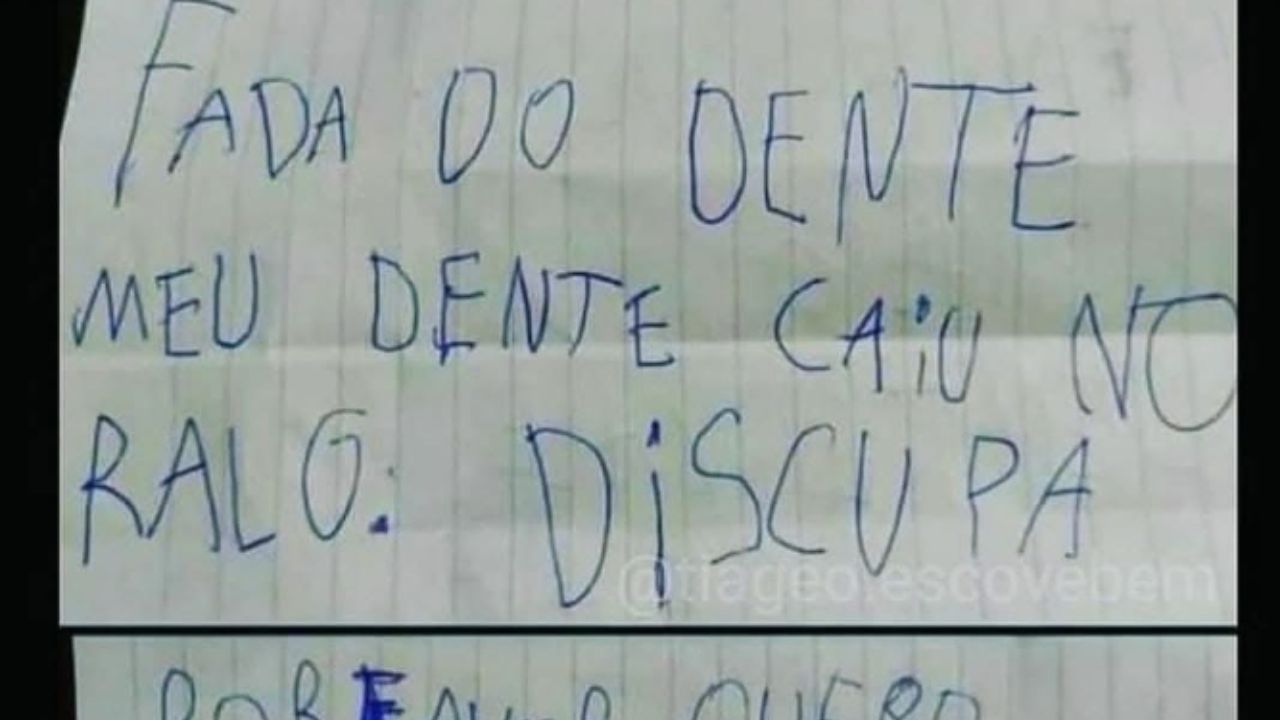 FADA DO DENTE
MEU DENTE CAiU NO
RALO. DiSCUPA
@tiageo.escovebem
POR FAVOR QUERO